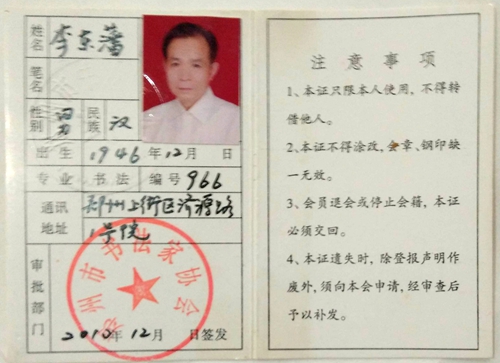 姓名 李东藩
笔名
性别 男 民族 汉
出生 1946 年 12 月 日
专业 书法 编号 966
通讯地址 郑州上街区济源路
1号院
审批部门
郑州市书法家协会
2013 年 12 月 日签发
注意事项
1、本证只限本人使用,不得转
借他人。
2、本证不得涂改,会章、钢印缺
一无效。
3、会员退会或停止会籍,本证
必须交回。
4、本证遗失时,除登报声明作
废外,须向本会申请,经审查后
予以补发。